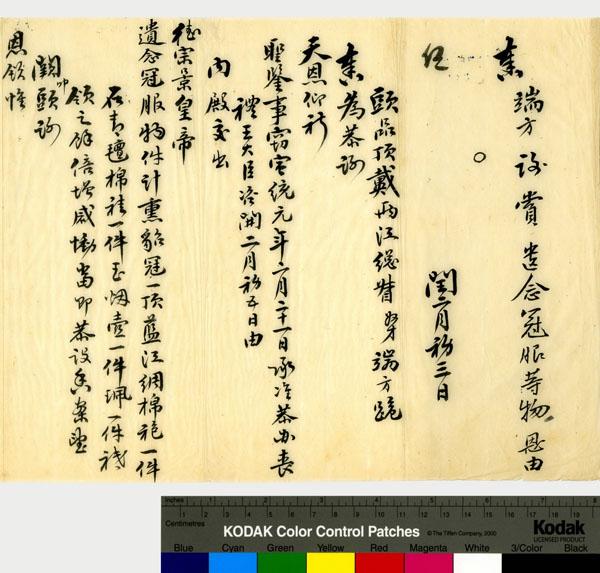 奏
端方 謝賞遺念冠服等物 恩由
閏二月初三日
頭品頂戴兩江總督臣端方跪
奏為恭謝
天恩仰祈
聖鑒事竊宣統元年二月二十一日承准恭辦喪
禮王大臣咨開二月初五日由
內殿交出
德宗景皇帝
遺念冠服物件計熏貂冠一頂藍江綢棉袍一件
石青氊棉褂一件玉烟壺一件珮一件祗
領之餘倍增感慟當即恭設香案望
闕叩頭謝
恩領惟
inches 1 2 3 4 5 6 7 8
Centimetres 1 2 3 4 5 6 7 8 9 10 11 12 13 14 15 16 17 18 19
KODAK Color Control Patches
© The Tiffen Company, 2000
Kodak
LICENSED PRODUCT
Blue Cyan Green Yellow Red Magenta White 3/Color Black